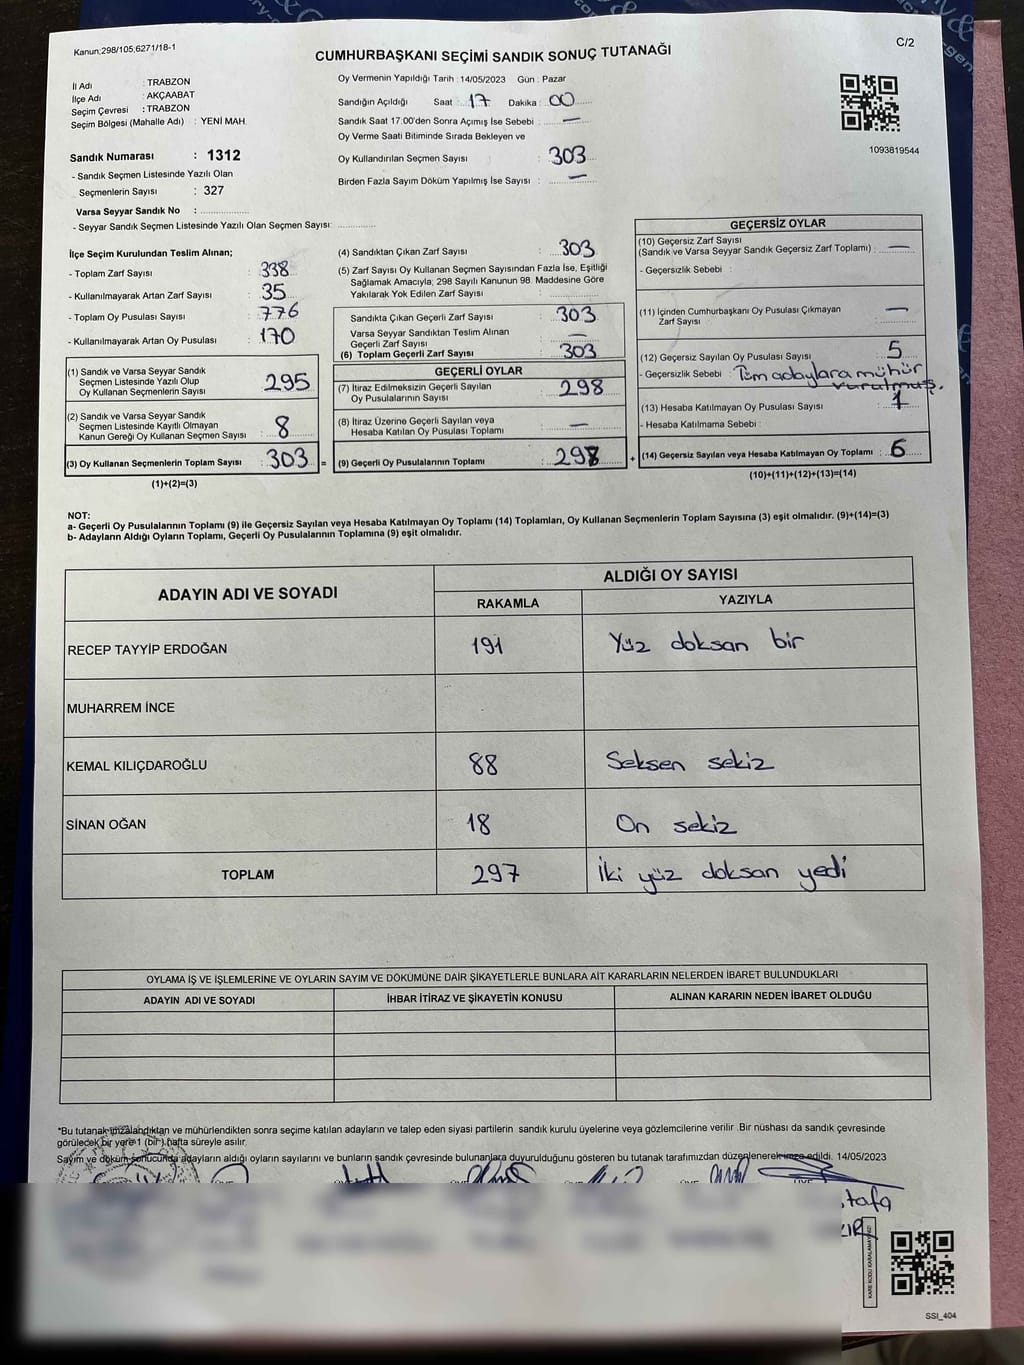 Kanun;298/105,6271/18-1
C/2
CUMHURBAŞKANI SEÇİMİ SANDIK SONUÇ TUTANAĞI
İl Adı : TRABZON
İlçe Adı : AKÇAABAT
Seçim Çevresi : TRABZON
Seçim Bölgesi (Mahalle Adı) : YENİ MAH.
Sandık Numarası : 1312
- Sandık Seçmen Listesinde Yazılı Olan
Seçmenlerin Sayısı : 327
Varsa Seyyar Sandık No :
- Seyyar Sandık Seçmen Listesinde Yazılı Olan Seçmen Sayısı:
Oy Vermenin Yapıldığı Tarih : 14/05/2023 Gün : Pazar
Sandığın Açıldığı Saat : 17 Dakika : 00
Sandık Saat 17:00'den Sonra Açımış İse Sebebi : —
Oy Verme Saati Bitiminde Sırada Bekleyen ve
Oy Kullandırılan Seçmen Sayısı : 303
Birden Fazla Sayım Döküm Yapılmış İse Sayısı : —
1093819544
İlçe Seçim Kurulundan Teslim Alınan;
- Toplam Zarf Sayısı : 338
- Kullanılmayarak Artan Zarf Sayısı : 35
- Toplam Oy Pusulası Sayısı : 776
- Kullanılmayarak Artan Oy Pusulası : 170
(1) Sandık ve Varsa Seyyar Sandık
Seçmen Listesinde Yazılı Olup
Oy Kullanan Seçmenlerin Sayısı : 295
(2) Sandık ve Varsa Seyyar Sandık
Seçmen Listesinde Kayıtlı Olmayan
Kanun Gereği Oy Kullanan Seçmen Sayısı : 8
(3) Oy Kullanan Seçmenlerin Toplam Sayısı : 303 =
(1)+(2)=(3)
(4) Sandıktan Çıkan Zarf Sayısı : 303
(5) Zarf Sayısı Oy Kullanan Seçmen Sayısından Fazla İse, Eşitliği
Sağlamak Amacıyla; 298 Sayılı Kanunun 98. Maddesine Göre
Yakılarak Yok Edilen Zarf Sayısı :
Sandıkta Çıkan Geçerli Zarf Sayısı : 303
Varsa Seyyar Sandıktan Teslim Alınan
Geçerli Zarf Sayısı : —
(6) Toplam Geçerli Zarf Sayısı : 303
GEÇERLİ OYLAR
(7) İtiraz Edilmeksizin Geçerli Sayılan
Oy Pusulalarının Sayısı : 298
(8) İtiraz Üzerine Geçerli Sayılan veya
Hesaba Katılan Oy Pusulası Toplamı : —
(9) Geçerli Oy Pusulalarının Toplamı : 298 +
GEÇERSİZ OYLAR
(10) Geçersiz Zarf Sayısı
(Sandık ve Varsa Seyyar Sandık Geçersiz Zarf Toplamı) : —
- Geçersizlik Sebebi :
(11) İçinden Cumhurbaşkanı Oy Pusulası Çıkmayan
Zarf Sayısı : —
(12) Geçersiz Sayılan Oy Pusulası Sayısı : 5
- Geçersizlik Sebebi : Tüm adaylara mühür
vurulmuş.
(13) Hesaba Katılmayan Oy Pusulası Sayısı : 1
- Hesaba Katılmama Sebebi :
(14) Geçersiz Sayılan veya Hesaba Katılmayan Oy Toplamı : 6
(10)+(11)+(12)+(13)=(14)
NOT:
a- Geçerli Oy Pusulalarının Toplamı (9) ile Geçersiz Sayılan veya Hesaba Katılmayan Oy Toplamı (14) Toplamları, Oy Kullanan Seçmenlerin Toplam Sayısına (3) eşit olmalıdır. (9)+(14)=(3)
b- Adayların Aldığı Oyların Toplamı, Geçerli Oy Pusulalarının Toplamına (9) eşit olmalıdır.
ADAYIN ADI VE SOYADI
ALDIĞI OY SAYISI
RAKAMLA YAZIYLA
RECEP TAYYİP ERDOĞAN 191 Yüz doksan bir
MUHARREM İNCE
KEMAL KILIÇDAROĞLU 88 Seksen sekiz
SİNAN OĞAN 18 On sekiz
TOPLAM 297 İki yüz doksan yedi
OYLAMA İŞ VE İŞLEMLERİNE VE OYLARIN SAYIM VE DÖKÜMÜNE DAİR ŞİKAYETLERLE BUNLARA AİT KARARLARIN NELERDEN İBARET BULUNDUKLARI
ADAYIN ADI VE SOYADI İHBAR İTİRAZ VE ŞİKAYETİN KONUSU ALINAN KARARIN NEDEN İBARET OLDUĞU
*Bu tutanak imzalandıktan ve mühürlendikten sonra seçime katılan adayların ve talep eden siyasi partilerin sandık kurulu üyelerine veya gözlemcilerine verilir .Bir nüshası da sandık çevresinde
görülecek bir yere 1 (bir) hafta süreyle asılır.
Sayım ve döküm sonucunda adayların aldığı oyların sayılarını ve bunların sandık çevresinde bulunanlara duyurulduğunu gösteren bu tutanak tarafımızdan düzenlenerek imza edildi. 14/05/2023
tafa
KARE KODU KARALAMAYINIZ!
SSI_404